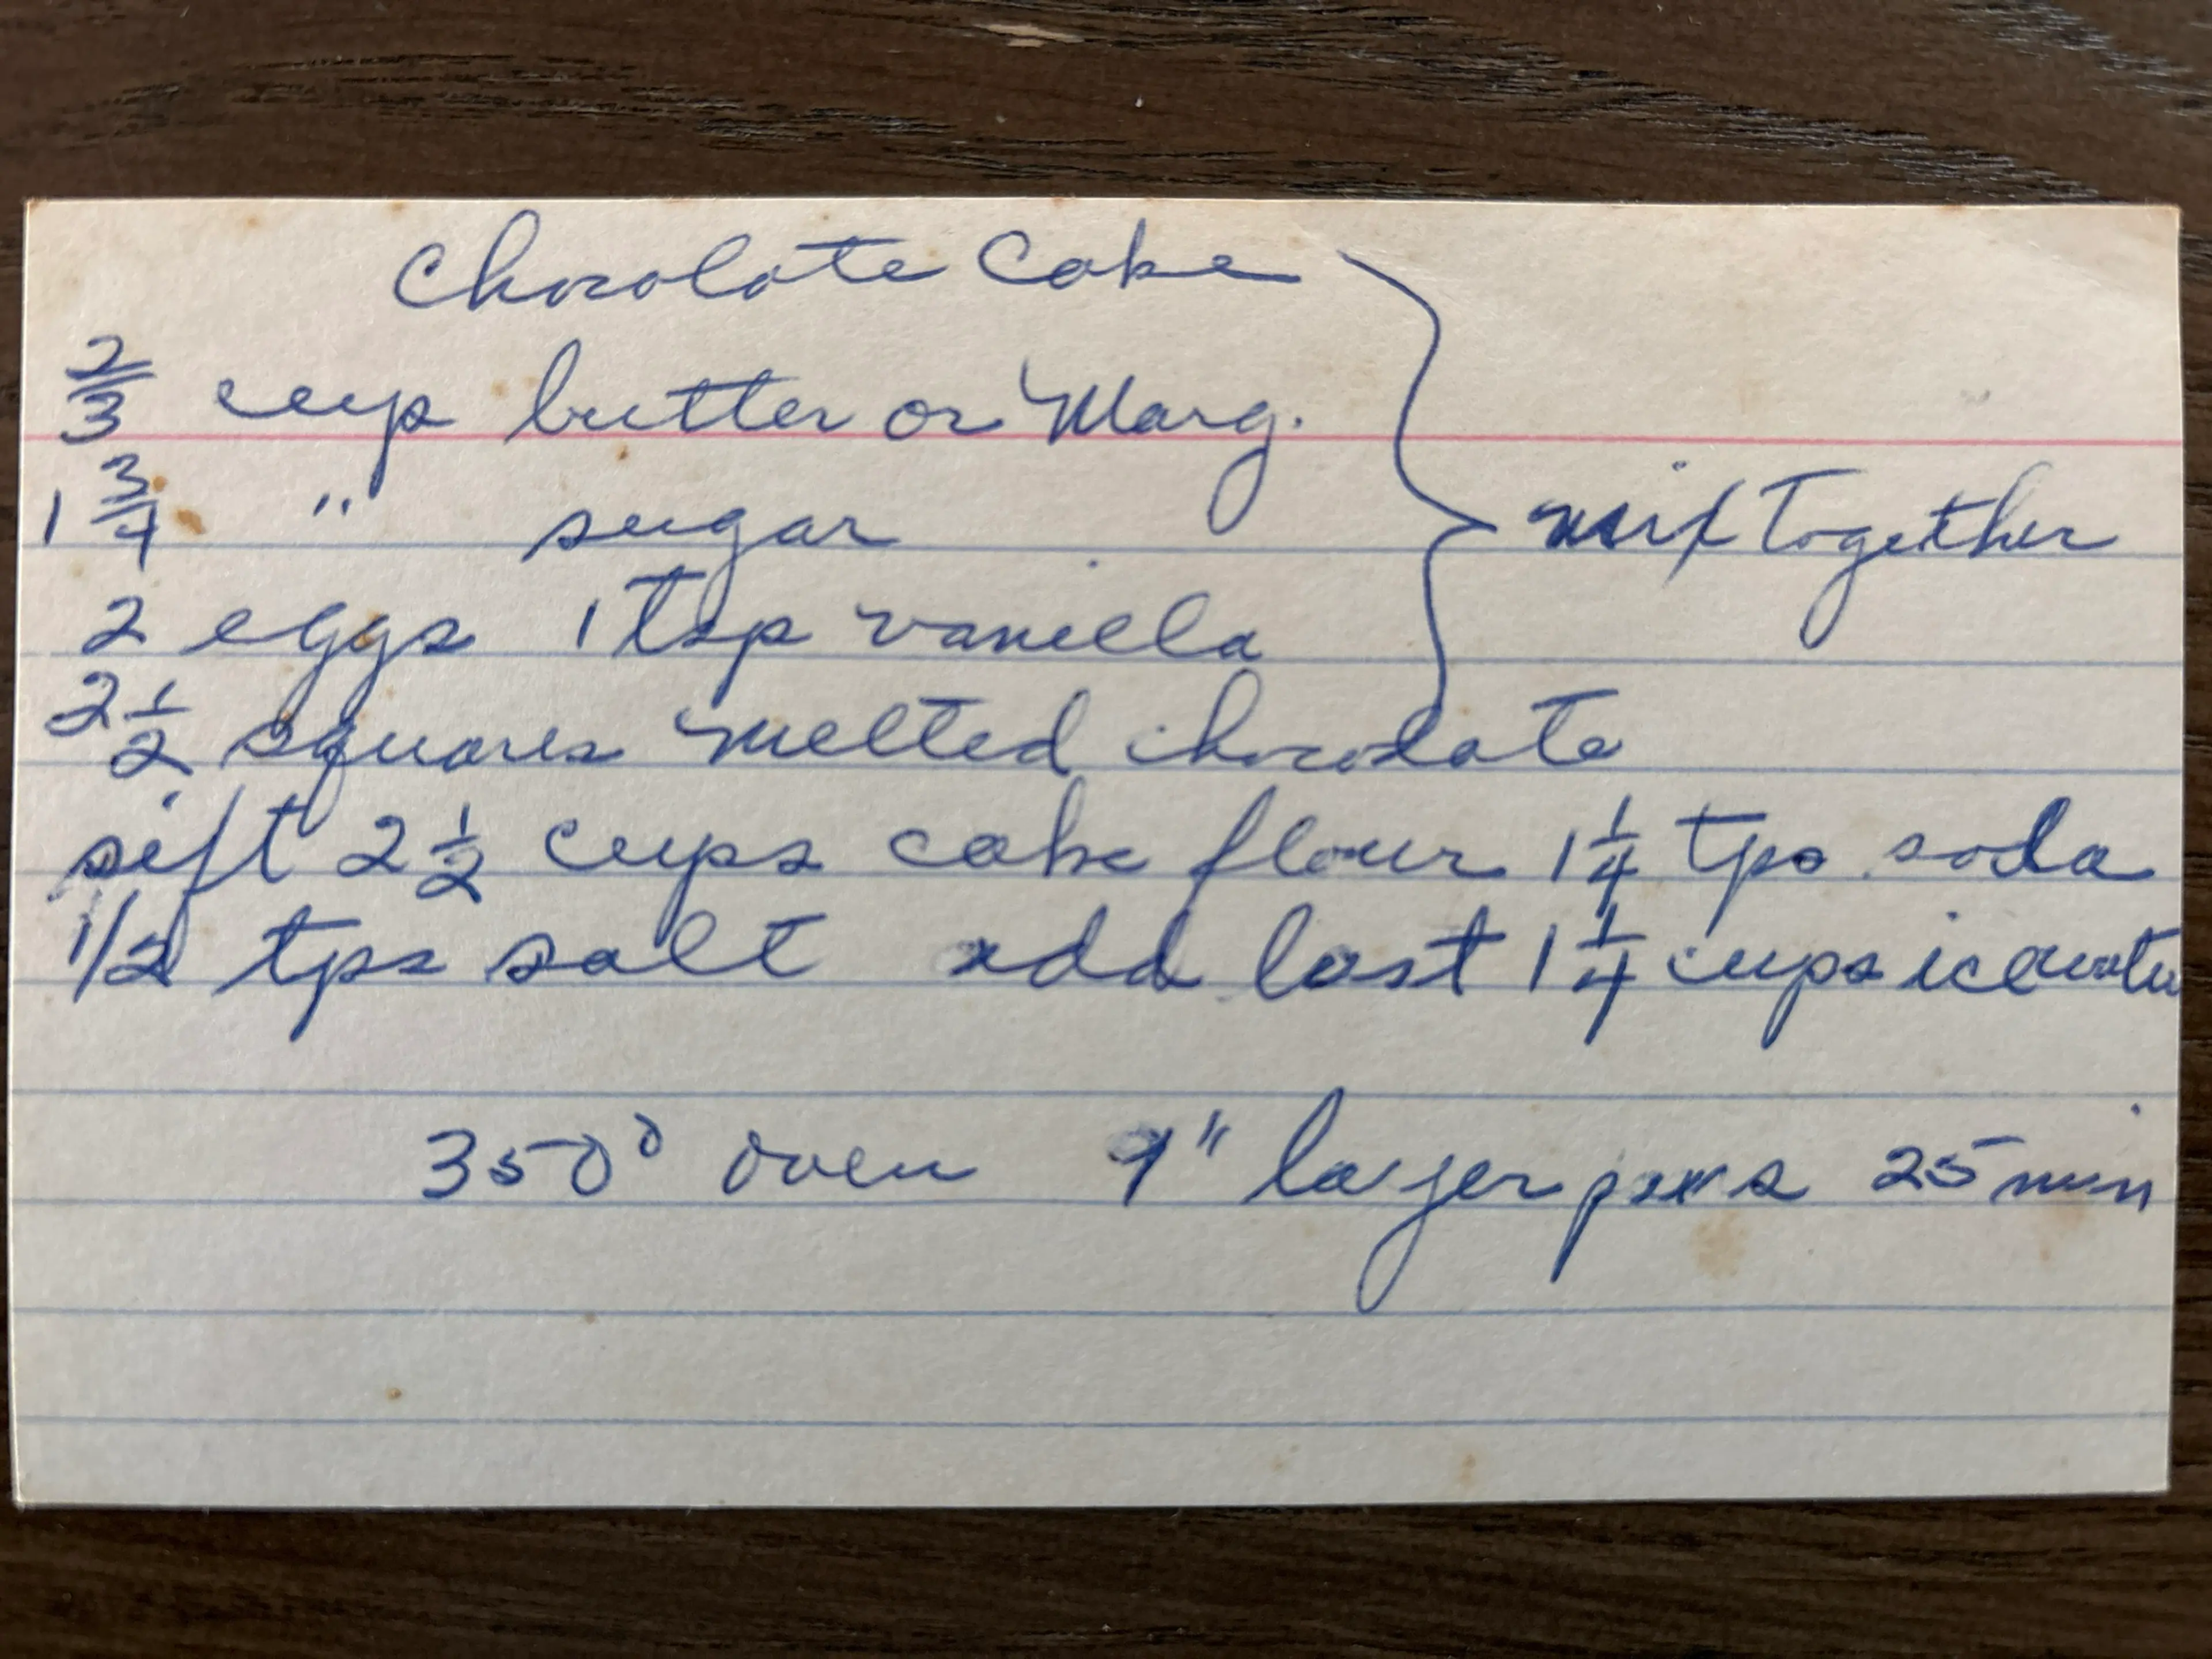 Chocolate Cake
2/3 cup butter or Marg.
1 3/4 " sugar
mix Together
2 eggs 1 tsp vanilla
2 1/2 squares melted chocolate
sift 2 1/2 cups cake flour 1 1/4 tps soda
1/2 tps salt add last 1 1/4 cups ice water
350° oven 9" layer pans 25 min